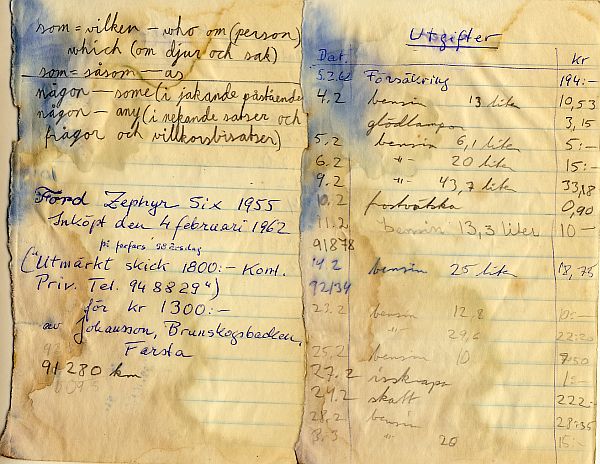 som = vilken – who om (person)
which (om djur och sak)
som = såsom — as
någon — some (i jakande påståenden
någon — any (i nekande satser och
frågor och villkorsbisatser)
Ford Zephyr Six 1955
Inköpt den 4 februari 1962
på farfars årsdag
("Utmärkt skick 1800:- Kont.
Priv. Tel. 94 88 29")
för kr 1300:-
av Johansson, Brunskogsbacken,
Farsta
91280 km
Utgifter
Dat. kr
5.2.62 Försäkring 194:-
4.2 bensin 13 liter 10,53
glödlampor 3,15
5.2 bensin 6,1 liter 5:-
6.2 -"- 20 liter 15:-
9.2 -"- 43,7 liter 33,18
10.2 0,90
11.2 bensin 13,3 liter 10-
91878
14.2 bensin 25 liter 18,75
92134
23.2 bensin 12,8 10:-
-"- 29,6 22:20
25.2 bensin 10 7.50
27.2 isskrapa 1:-
24.2 skatt 222:-
28.2 bensin 28:35
3.3 -"- 20 15:-